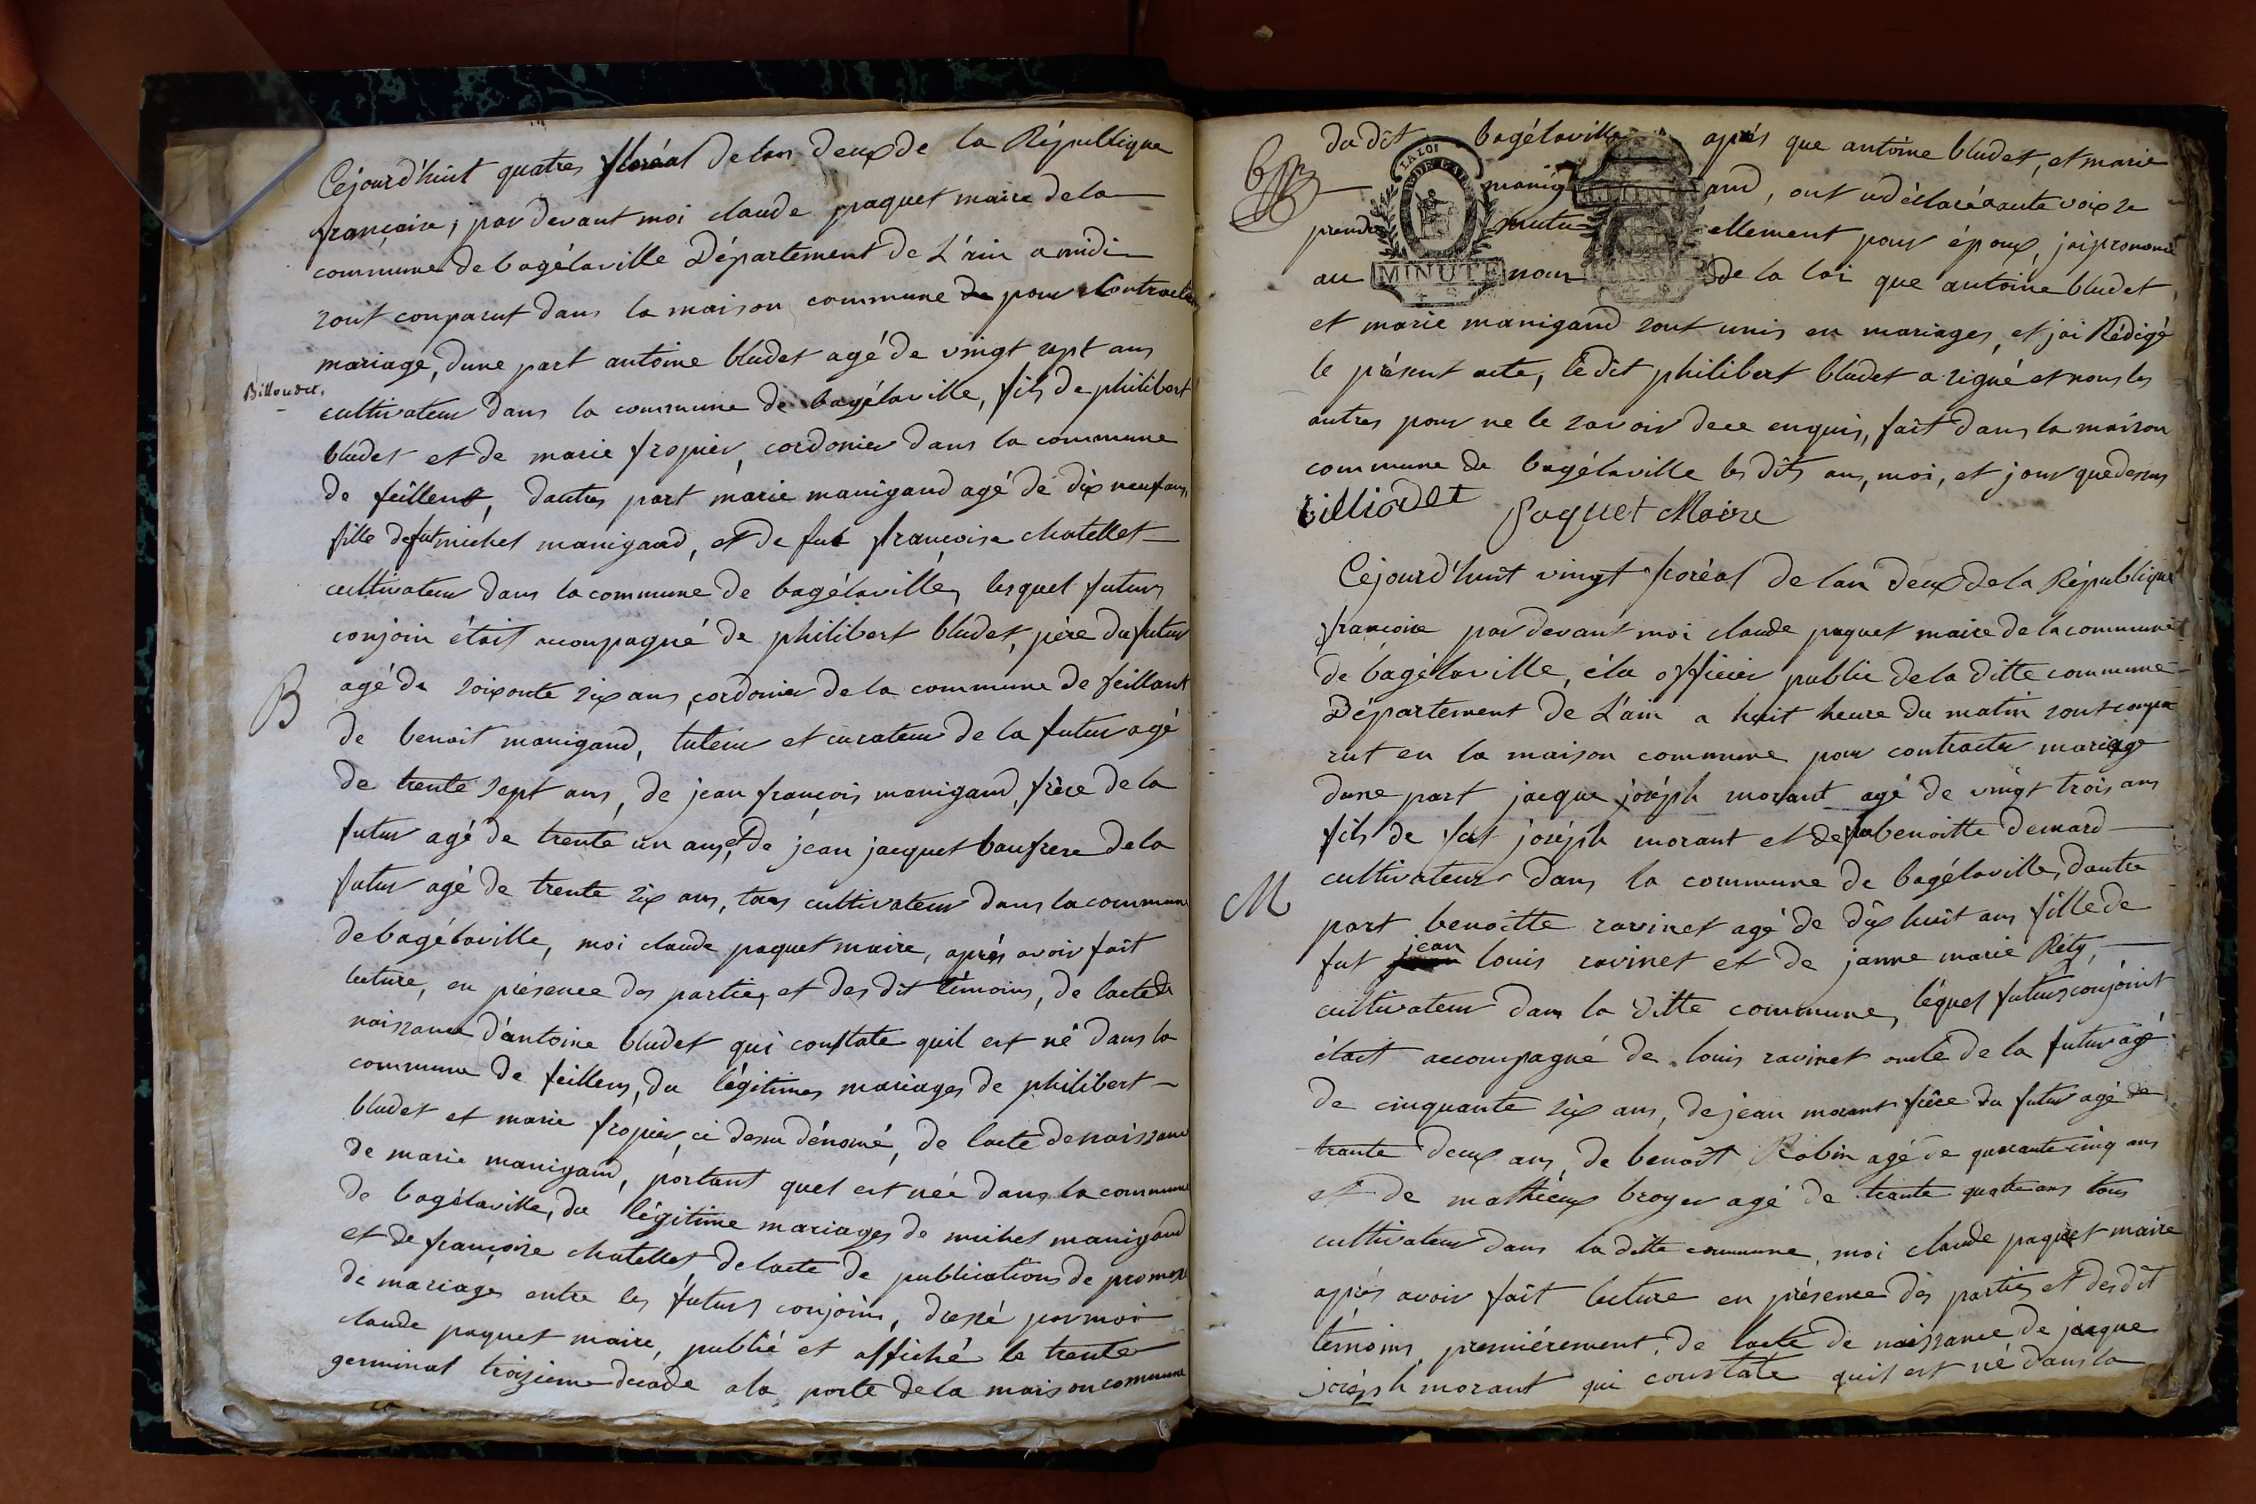 Cejourd'huit quatres floréal de lan deux de la République
françaire, par devant moi claude paquet maire de la
commune de bagélaville Département de L'ain a midi
sont comparut dans la maison commune de pour Contracter
mariage, dune part antoine bludet agé de vingt sept ans
Billoudet.
cultivateur dans la commune de bagélaville, fils de philibert
bludet et de marie fropier, cordonier dans la commune
de feillent, dautres part marie manigand agé de dix neuf ans,
fille defut michel manigand, et de fut françoise chatellet
cultivateur dans la commune de bagélaville, lesquel futurs
conjoin étoit acompagné de philibert bludet, père du futur
B
agé de soixante six ans, cordonier de la commune de feillant
de benoit manigand, tuteur et curateur de la futur agé
de trente sept ans, de jean françois manigand, frère de la
futur agé de trente un ans, et de jean jacquet baufrere de la
futur agé de trente six ans, tous cultivateur dans la commune
de bagélaville, moi claude paquet maire, aprés avoir fait
lecture, en présence des parties, et des dit témoins, de lacte de
naissance d'antoine bludet qui constate quil est né dans la
commune de feillens, du légitimes mariages de philibert
bludet et marie fropier, ci desu dénomé, de lacte de naissance
de marie manigand, portant quel est née dans la commune
de bagélaville, du légitime mariages de michel manigand
et de françoise chatellet de lacte de publications de promesse
de mariages entre les futurs conjoins, dressé par moi
claude paquet maire, publié et affiché le trente
germinal troizieme décade a la porte de la maison commune
du dit bagélaville aprés que antoine bludet, et marie
manigand, ont déclaré a aute voix se
prendre mutuellement pour époux, jai prononcé
au nom de la loi que antoine bludet
LA LOI
MINUTE
et marie manigand sont unis en mariages, et jai Rédigé
le présent acte, lédit philibert bludet a signé et nous les
autres pour ne le savoir de ce enquis, fait dans la maison
commune de bagélaville les dits ans, moi, et jour que desus
billiodet Paquet Maire
Cejourd'huit vingt floréal de lan deux de la République
françoise par devant moi claude paquet maire de la commune
de bagélaville, élu officier public de la ditte commune
Département de L'ain a huit heure du matin sont compa
rut en la maison commune pour contracter mariage
dune part jacque joséph morant agé de vingt trois ans
fils de fut joséph morant et de fu benoitte demard
cultivateur dans la commune de bagélaville, dautre
M
part benoitte ravinet agé de dix huit ans fille de
fut jean louis ravinet et de janne marie Réty,
cultivateur dans la ditte commune, léquel futurs conjoint
étoit accompagné de louis ravinet oncle de la futur agé
de cinquante six ans, de jean morant frêre du futur agé de
trante deux ans, de benoît Robin agé de quarante cinq ans
et de mathieux broyer agé de trante quatre ans tous
cultivateur dans la ditte commune, moi claude paquet maire
aprés avoir fait lecture en présence des parties et des dit
témoins premiérement, de lacte de naissance de jacque
joséph morant qui constate quil est né dans la